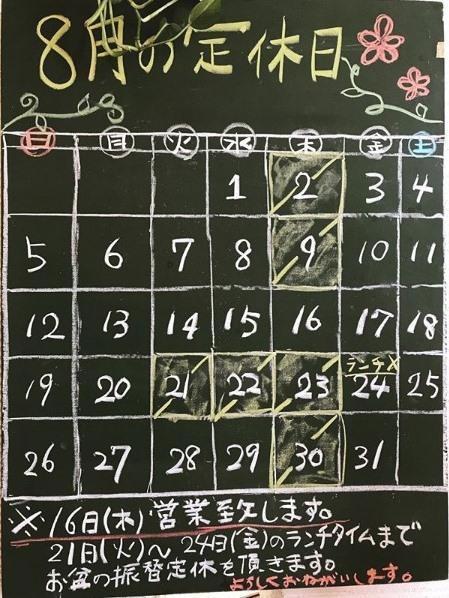 8月の定休日
日 月 火 水 木 金 土
1 2 3 4
5 6 7 8 9 10 11
12 13 14 15 16 17 18
ランチ×
19 20 21 22 23 24 25
26 27 28 29 30 31
※16日(木)営業致します。
21日(火)～24日(金)のランチタイムまで
お盆の振替定休を頂きます。
よろしくおねがいします。